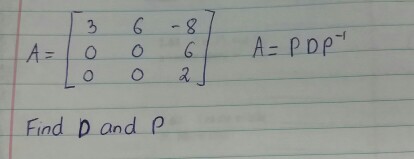 A = [ 3 6 -8
0 0 6
0 0 2 ] A = PDP⁻¹
Find D and P